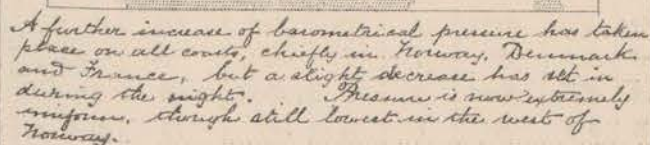 A further increase of barometrical pressure has taken
place on all coasts, chiefly in Norway, Denmark
and France, but a slight decrease has set in
during the night. Pressure is now extremely
uniform, though still lowest in the west of
Norway.